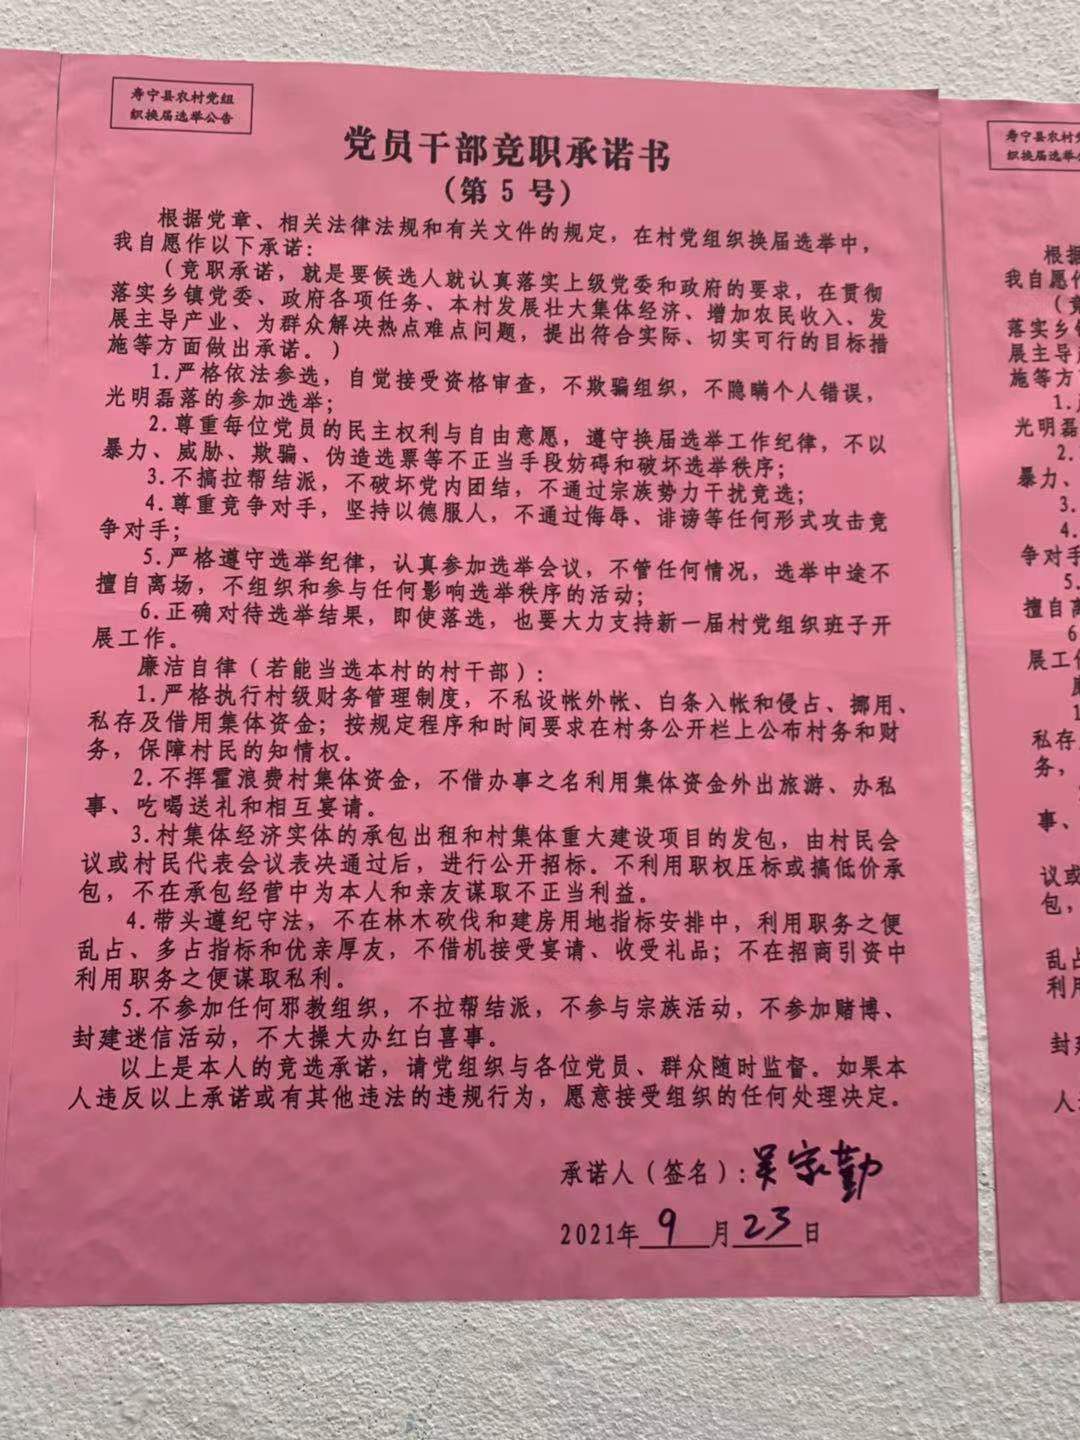 寿宁县农村党组
织换届选举公告
党员干部竞职承诺书
（第 5 号）
根据党章、相关法律法规和有关文件的规定，在村党组织换届选举中，
我自愿作以下承诺：
（竞职承诺，就是要候选人就认真落实上级党委和政府的要求，在贯彻
落实乡镇党委、政府各项任务、本村发展壮大集体经济、增加农民收入、发
展主导产业、为群众解决热点难点问题，提出符合实际、切实可行的目标措
施等方面做出承诺。）
1.严格依法参选，自觉接受资格审查，不欺骗组织，不隐瞒个人错误，
光明磊落的参加选举；
2.尊重每位党员的民主权利与自由意愿，遵守换届选举工作纪律，不以
暴力、威胁、欺骗、伪造选票等不正当手段妨碍和破坏选举秩序；
3.不搞拉帮结派，不破坏党内团结，不通过宗族势力干扰竞选；
4.尊重竞争对手，坚持以德服人，不通过侮辱、诽谤等任何形式攻击竞
争对手；
5.严格遵守选举纪律，认真参加选举会议，不管任何情况，选举中途不
擅自离场，不组织和参与任何影响选举秩序的活动；
6.正确对待选举结果，即使落选，也要大力支持新一届村党组织班子开
展工作。
廉洁自律（若能当选本村的村干部）：
1.严格执行村级财务管理制度，不私设帐外帐、白条入帐和侵占、挪用、
私存及借用集体资金；按规定程序和时间要求在村务公开栏上公布村务和财
务，保障村民的知情权。
2.不挥霍浪费村集体资金，不借办事之名利用集体资金外出旅游、办私
事、吃喝送礼和相互宴请。
3.村集体经济实体的承包出租和村集体重大建设项目的发包，由村民会
议或村民代表会议表决通过后，进行公开招标。不利用职权压标或搞低价承
包，不在承包经营中为本人和亲友谋取不正当利益。
4.带头遵纪守法，不在林木砍伐和建房用地指标安排中，利用职务之便
乱占、多占指标和优亲厚友，不借机接受宴请、收受礼品；不在招商引资中
利用职务之便谋取私利。
5.不参加任何邪教组织，不拉帮结派，不参与宗族活动，不参加赌博、
封建迷信活动，不大操大办红白喜事。
以上是本人的竞选承诺，请党组织与各位党员、群众随时监督。如果本
人违反以上承诺或有其他违法的违规行为，愿意接受组织的任何处理决定。
承诺人（签名）：吴家勤
2021年 9 月 23 日
寿宁县农村党
织换届选举公
根据
我自愿作
（竞
落实乡镇
展主导产
施等方
1.
光明磊
2.
暴力、
3.
4.
争对手
5.
擅自离
6
展工作
1
私存
务，
事、
议或
包，
乱占
利用
封建
人